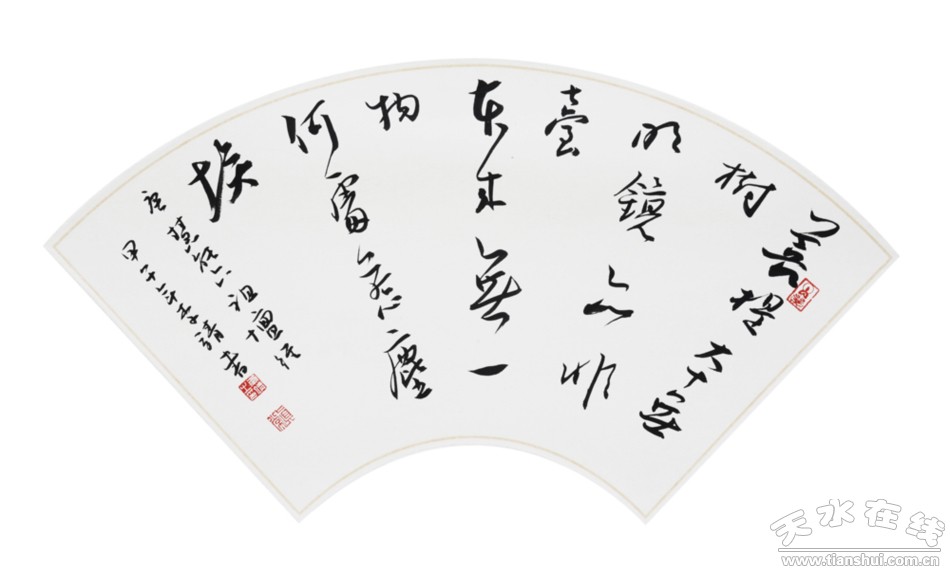 菩提本無
樹
明鏡亦非
臺
本来無一
物
何處惹塵
埃
唐慧能六祖壇經
書
天水在线
www.tianshui.com.cn